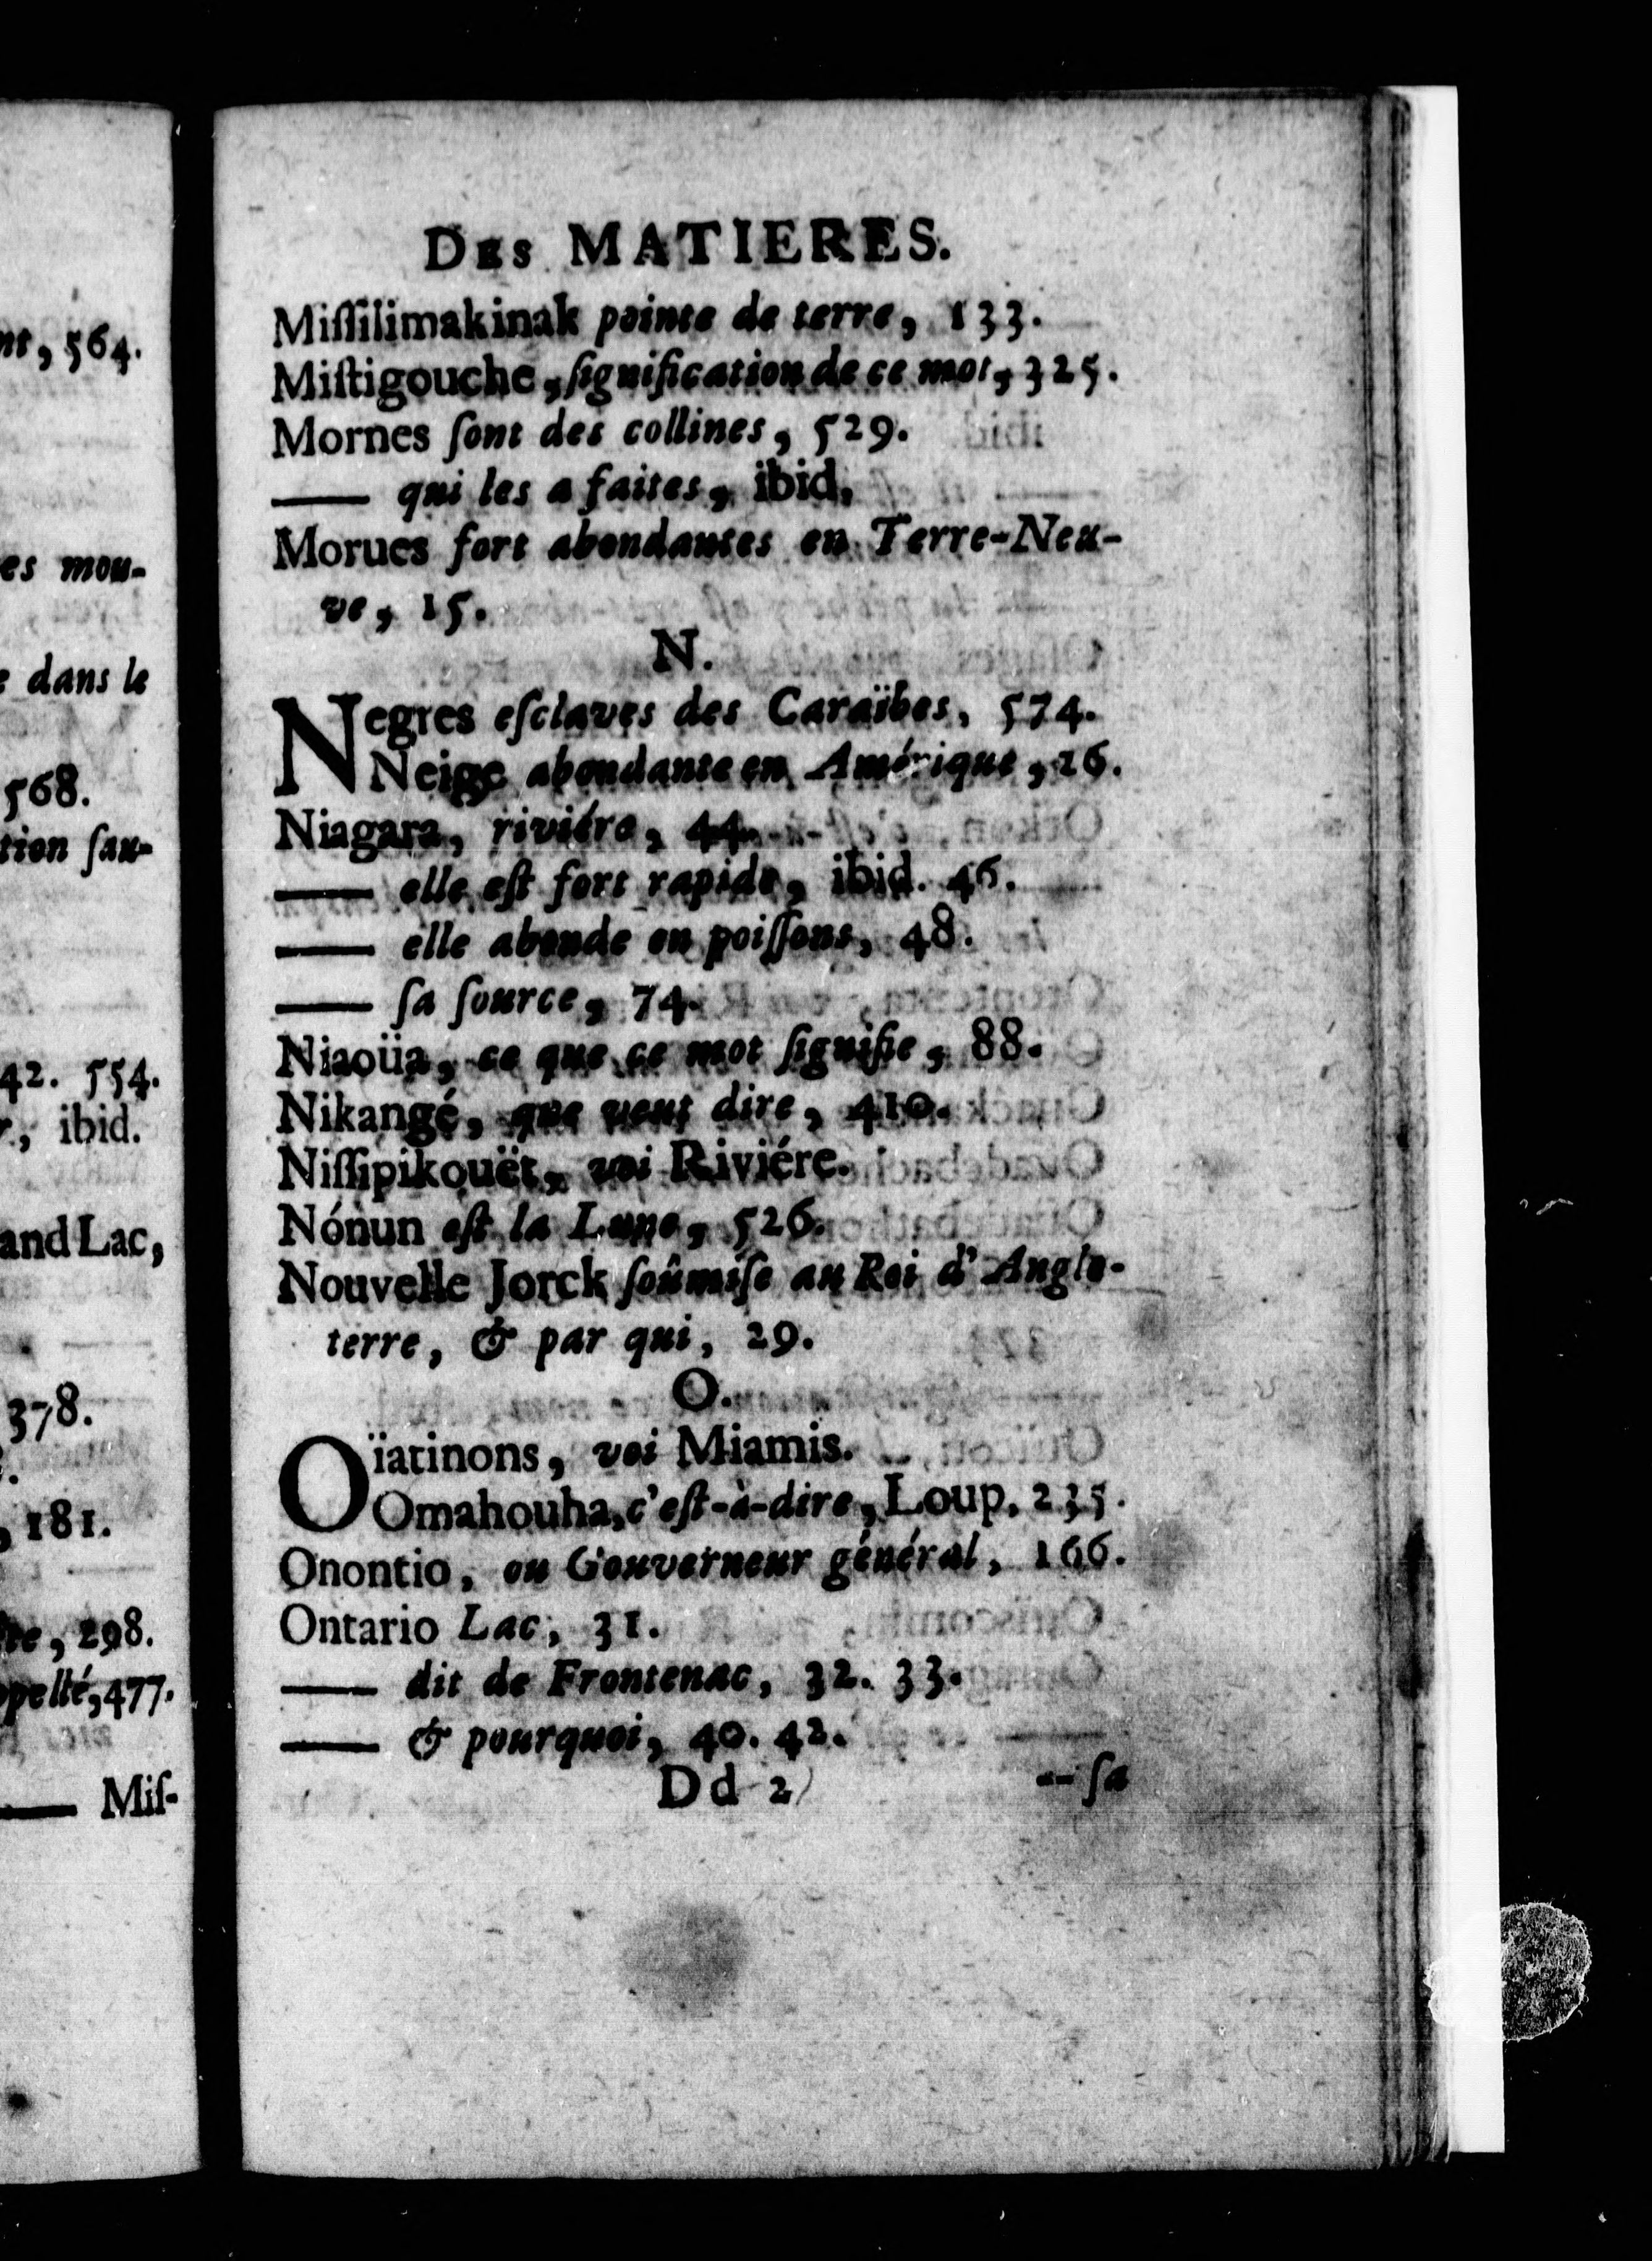 nt, 564.
es mou-
e dans le
568.
tion ſau-
42. 554.
r, ibid.
and Lac,
378.
, 181.
te, 298.
ppellé, 477.
—— Miſ-
DES MATIERES.
Miſſilimakinak pointe de terre, 133.
Miſtigouche, ſignification de ce mot, 325.
Mornes ſont des collines, 529.
—— qui les a faites, ibid.
Morues fort abondantes en Terre-Neu-
ve, 15.
N.
Negres eſclaves des Caraïbes, 574.
Neige abondante en Amérique, 26.
Niagara, riviére, 44.
—— elle eſt fort rapide, ibid. 46.
—— elle abonde en poiſſons, 48.
—— ſa ſource, 74.
Niaoüa, ce que ce mot ſignifie, 88.
Nikangé, que veut dire, 410.
Niſſipikouët, voi Riviére.
Nónun eſt la Lune, 526.
Nouvelle Jorck ſoûmiſe au Roi d'Angle-
terre, & par qui, 29.
O.
Oïatinons, voi Miamis.
Omahouha, c'eſt-à-dire, Loup, 235.
Onontio, ou Gouverneur général, 166.
Ontario Lac, 31.
—— dit de Frontenac, 32. 33.
—— & pourquoi, 40. 42.
Dd 2 -- ſa